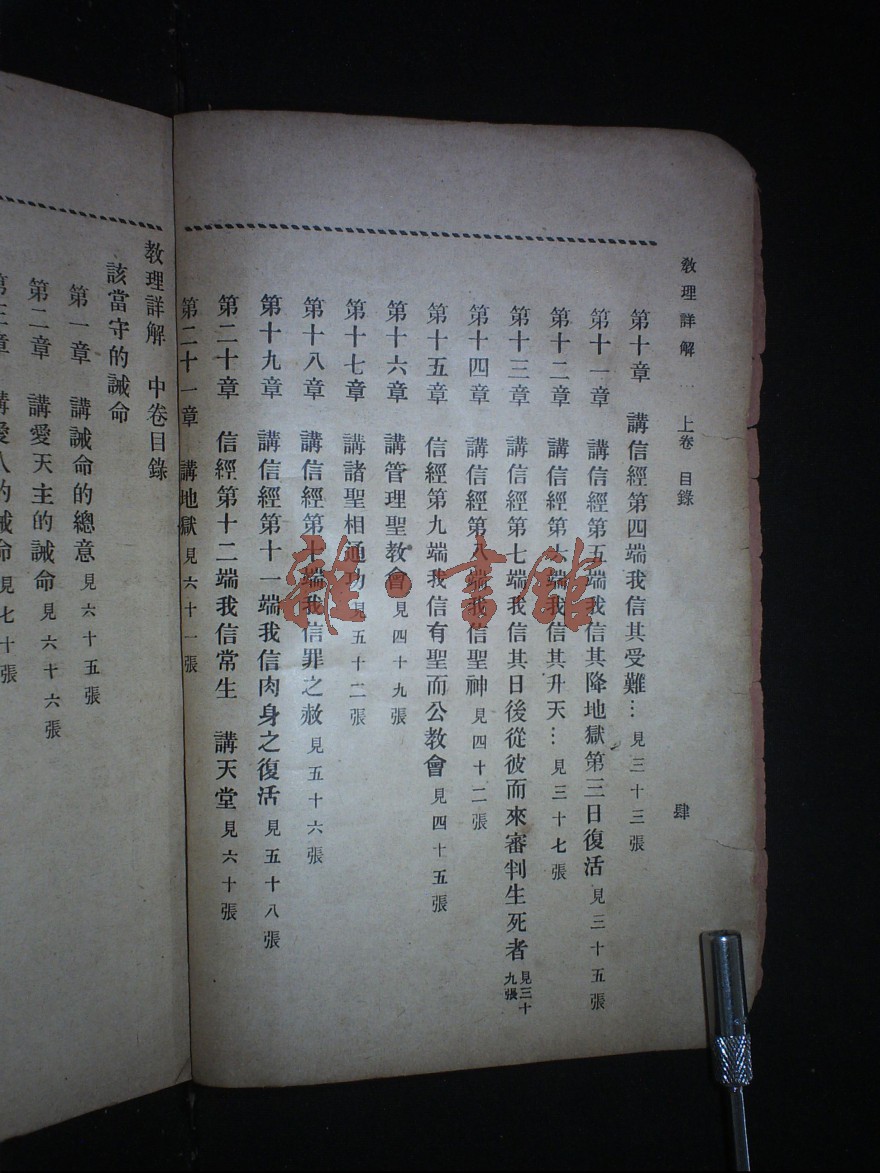 教理詳解 上卷 目錄 肆
第十章 講信經第四端我信其受難… 見三十三張
第十一章 講信經第五端我信其降地獄第三日復活 見三十五張
第十二章 講信經第六端我信其升天… 見三十七張
第十三章 講信經第七端我信其日後從彼而來審判生死者 見三十九張
第十四章 講信經第八端我信聖神 見四十二張
第十五章 信經第九端我信有聖而公教會 見四十五張
第十六章 講管理聖教會 見四十九張
第十七章 講諸聖相通功 見五十二張
第十八章 講信經第十端我信罪之赦 見五十六張
第十九章 講信經第十一端我信肉身之復活 見五十八張
第二十章 信經第十二端我信常生 講天堂 見六十張
第二十一章 講地獄 見六十一張
教理詳解 中卷目錄
該當守的誡命
第一章 講誡命的總意 見六十五張
第二章 講愛天主的誡命 見六十六張
第三章 講愛人的誡命 見七十張
雜·書館